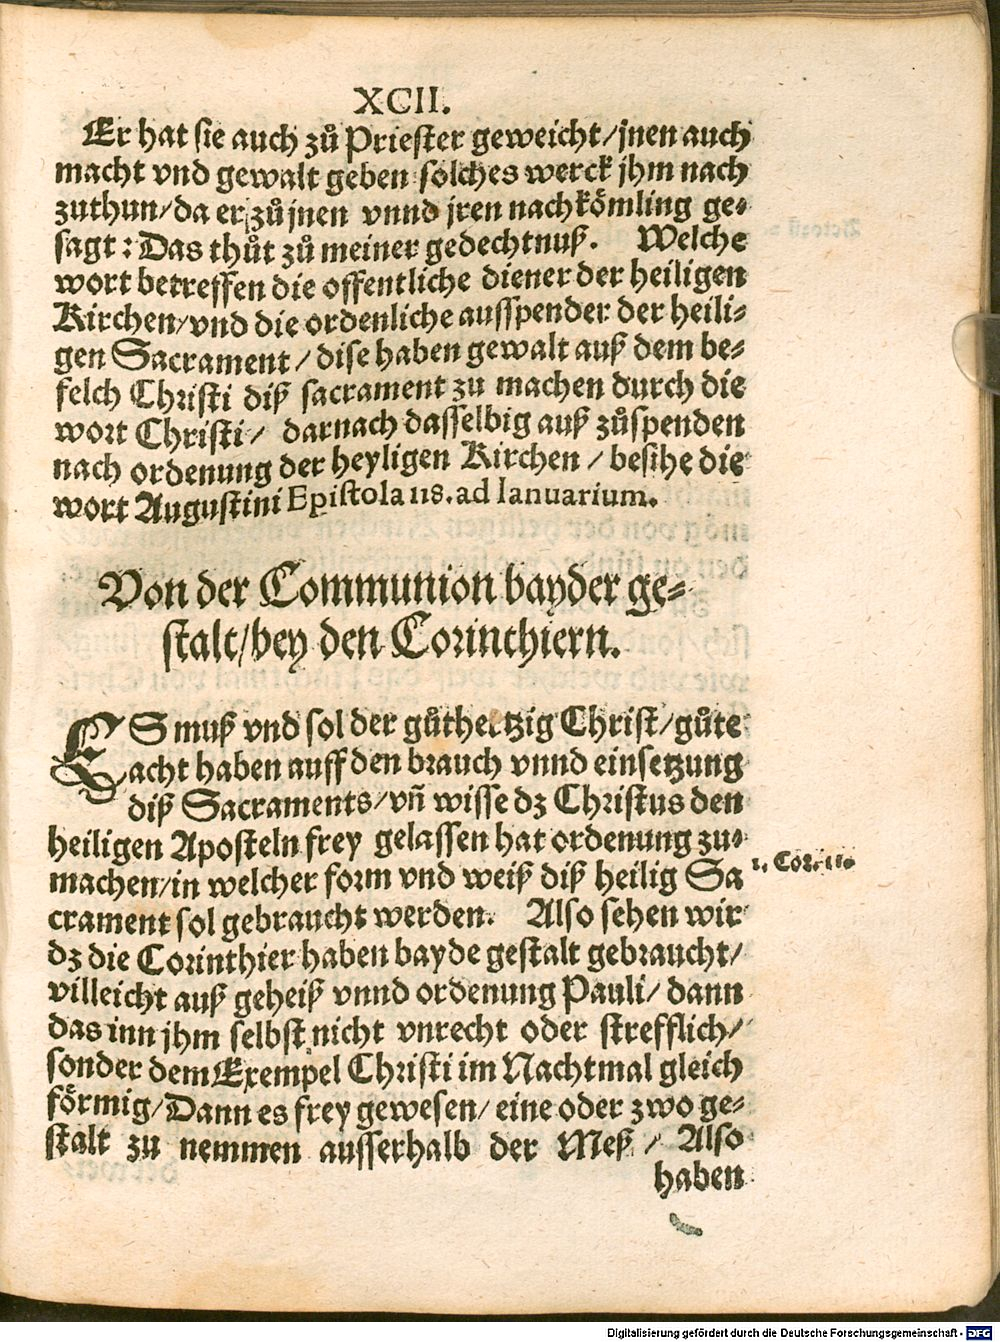 XCII.
Er hat sie auch zů Priester geweicht/jnen auch
macht vnd gewalt geben solches werck jhm nach
zuthun/da er zů jnen vnnd jren nachkömling ge-
sagt: Das thůt zů meiner gedechtnuß. Welche
wort betreffen die offentliche diener der heiligen
Kirchen/vnd die ordenliche ausspender der heili-
gen Sacrament/dise haben gewalt auß dem be-
felch Christi diß sacrament zu machen durch die
wort Christi/ darnach dasselbig auß zůspenden
nach ordenung der heyligen Kirchen/besihe die
wort Augustini Epistola 118. ad Ianuarium.
Von der Communion bayder ge-
stalt/bey den Corinthiern.
ES muß vnd sol der gůthertzig Christ/gůte
acht haben auff den brauch vnnd einsetzung
diß Sacraments/vñ wisse dz Christus den
heiligen Aposteln frey gelassen hat ordenung zu-
machen/in welcher form vnd weiß diß heilig Sa
1. Cor. 11.
crament sol gebraucht werden. Also sehen wir
dz die Corinthier haben bayde gestalt gebraucht/
villeicht auß geheiß vnnd ordenung Pauli/dann
das inn jhm selbst nicht vnrecht oder strefflich/
sonder dem Exempel Christi im Nachtmal gleich
förmig/Dann es frey gewesen/eine oder zwo ge-
stalt zu nemmen ausserhalb der Meß/ Also
haben
Digitalisierung gefördert durch die Deutsche Forschungsgemeinschaft - DFG